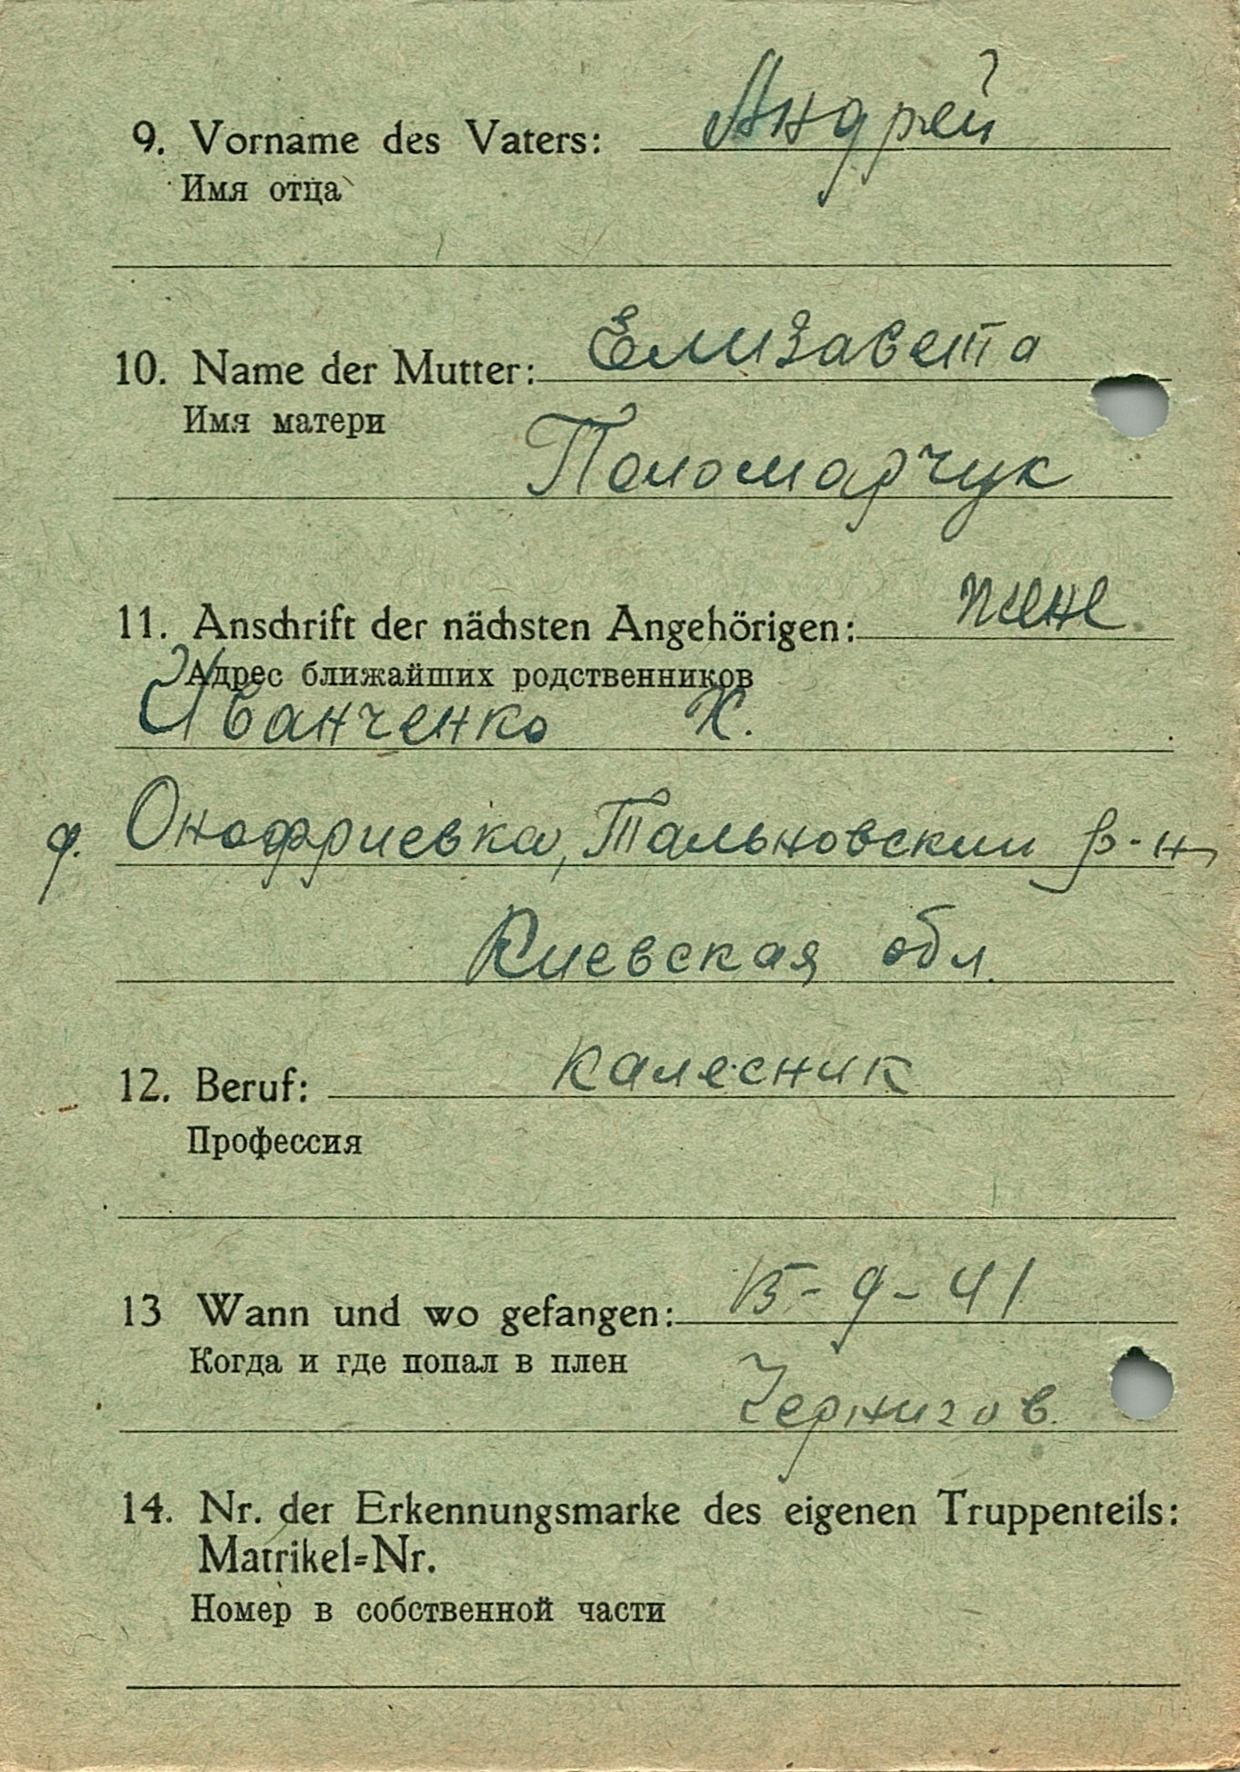 9. Vorname des Vaters: Андрей
Имя отца
10. Name der Mutter: Елизавета
Имя матери
Поломарчук
11. Anschrift der nächsten Angehörigen: жене
Адрес ближайших родственников
Иванченко Х.
д. Онофриевка, Тальновский р-н
Киевская обл.
12. Beruf: калесник
Профессия
13 Wann und wo gefangen: 15-9-41
Когда и где попал в плен
Чернигов
14. Nr. der Erkennungsmarke des eigenen Truppenteils:
Matrikel=Nr.
Номер в собственной части